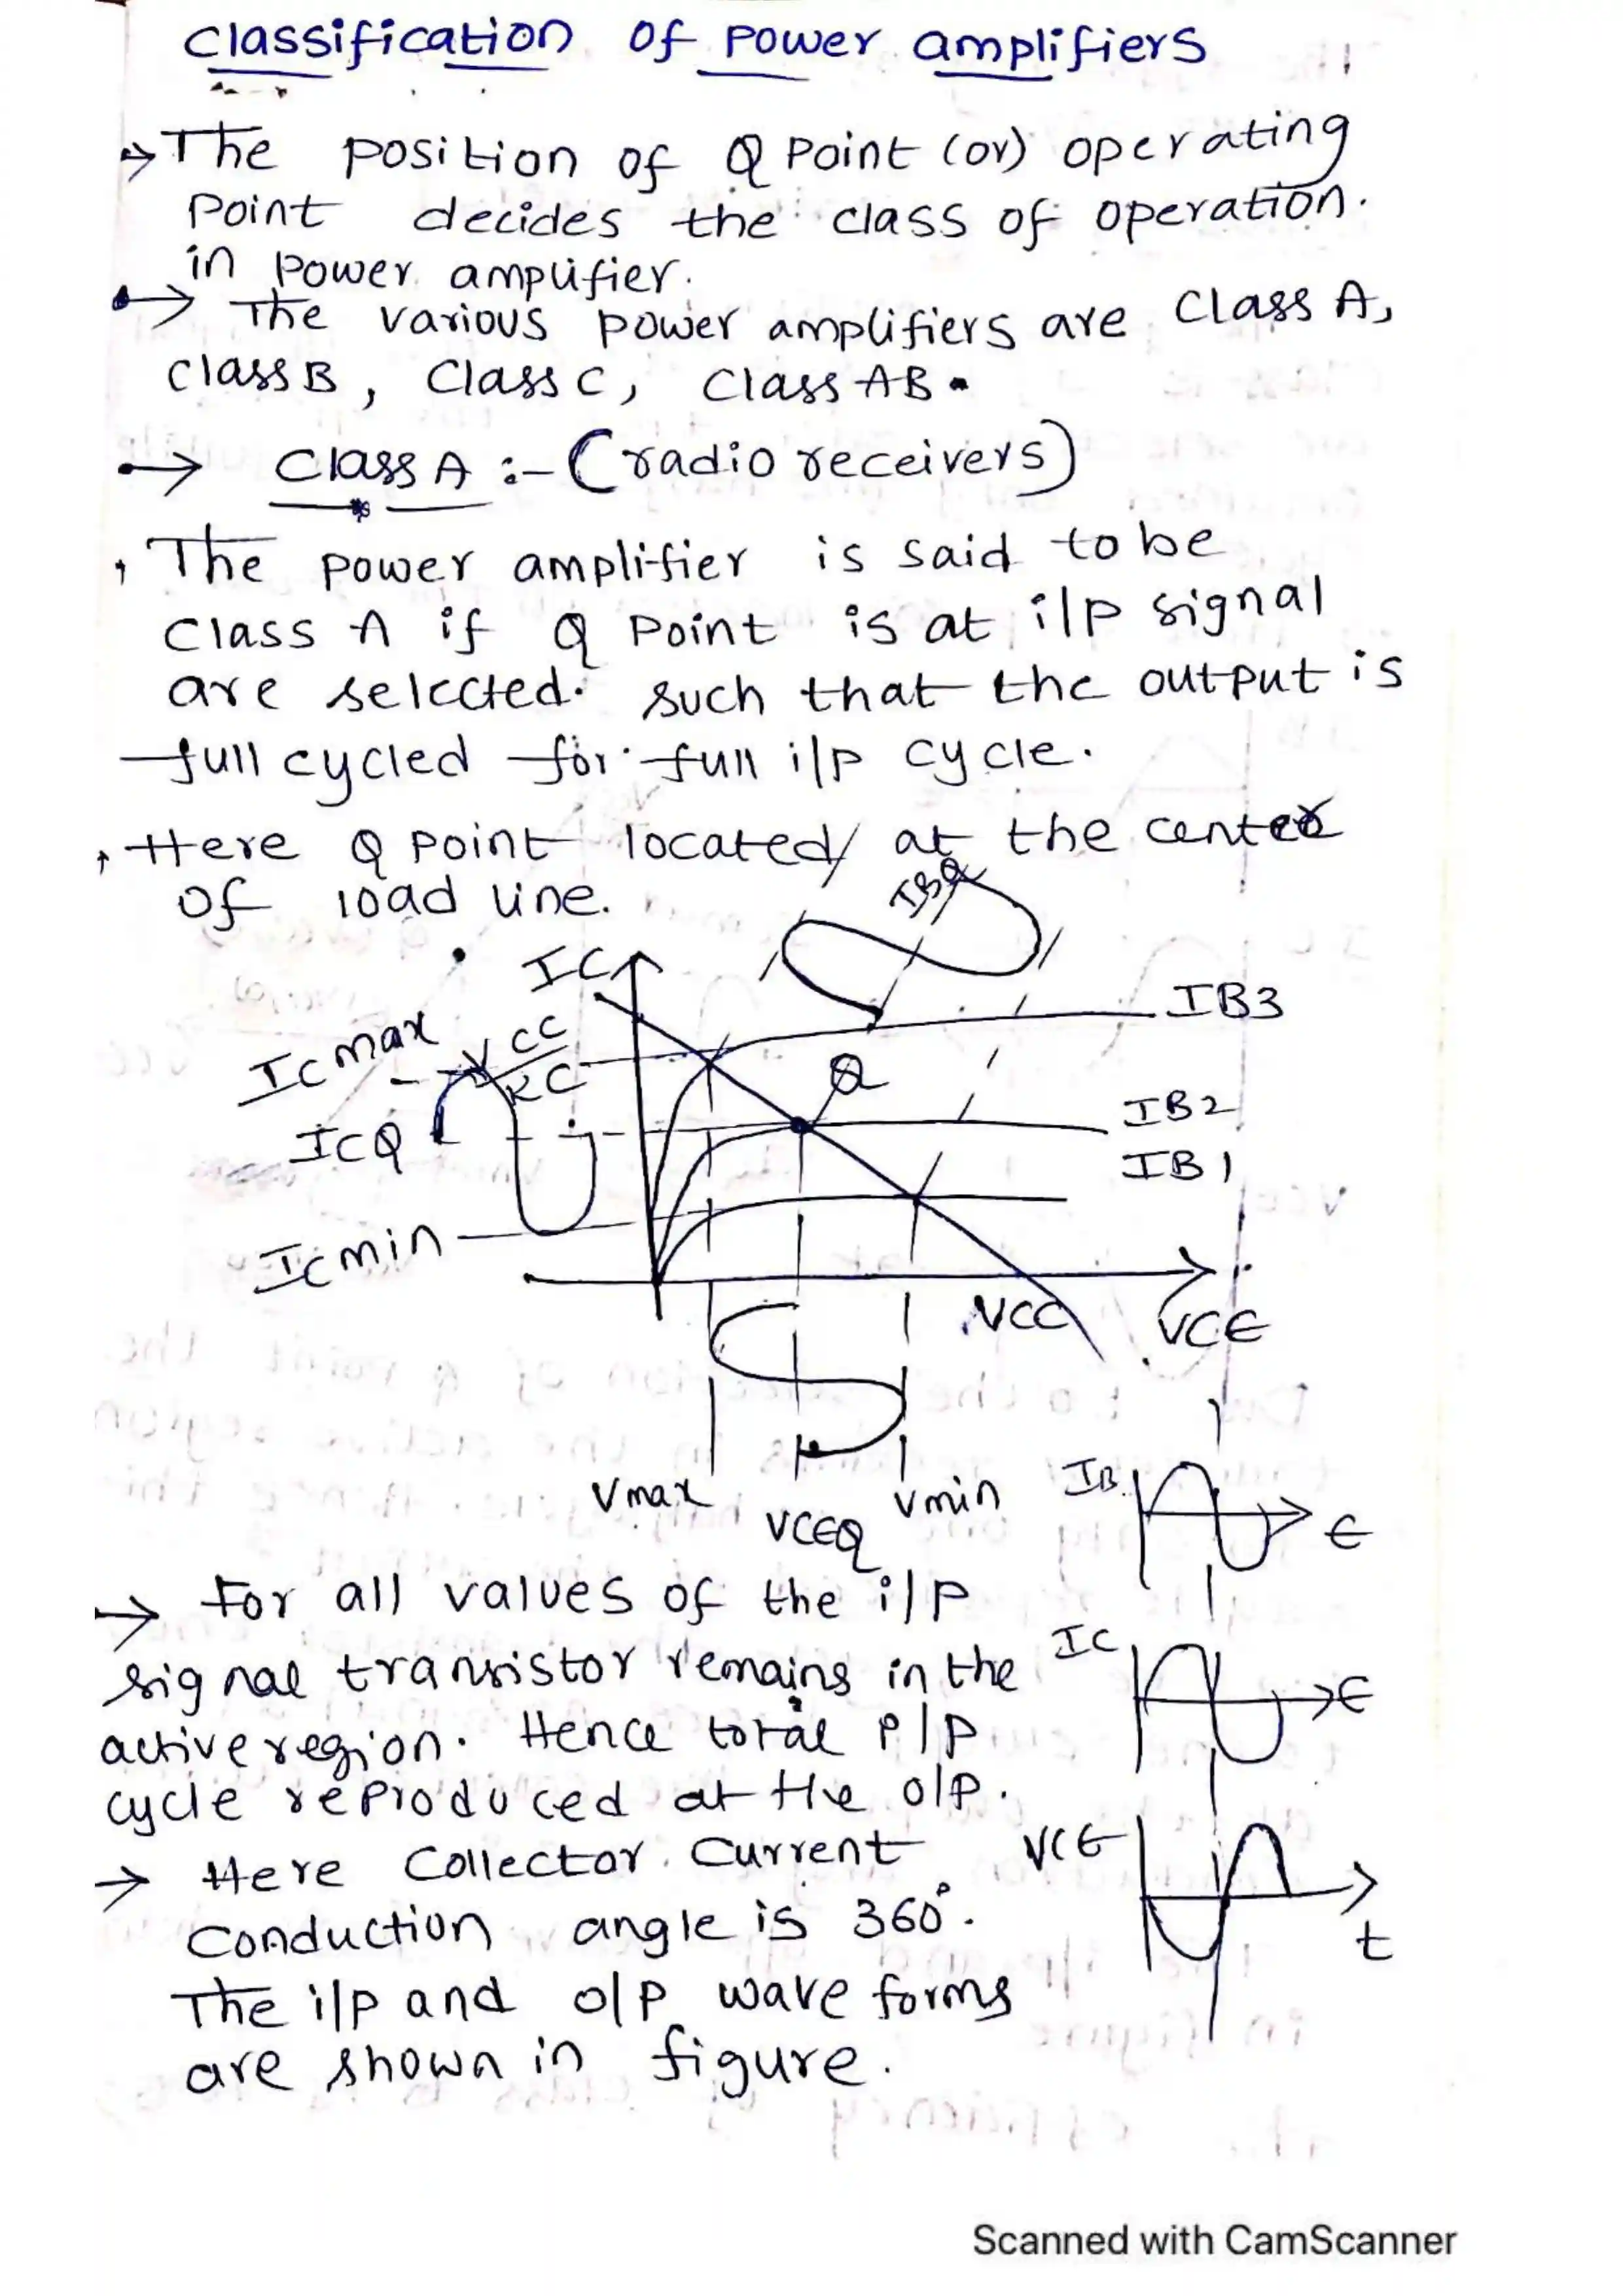 classification of power amplifiers
→ The position of Q Point (or) operating
Point decides the class of operation.
in power amplifier.
→ The various power amplifiers are Class A,
Class B, Class C, Class AB.
→ Class A :- (radio receivers)
The power amplifier is said to be
Class A if Q Point is at i/p signal
are selected. such that the output is
full cycled for full i/p cycle.
Here Q point located at the center
of load line.
IBQ
IC
IB3
ICmax
VCC
RC
Q
IB2
ICQ
IB1
ICmin
VCC
VCE
Vmax
VCEQ
Vmin
IB
t
→ For all values of the i/p
signal transistor remains in the
active region. Hence total i/p
cycle reproduced at the o/p.
IC
t
→ Here Collector Current
Conduction angle is 360°.
The i/p and o/p wave forms
are shown in figure.
VCE
t
Scanned with CamScanner